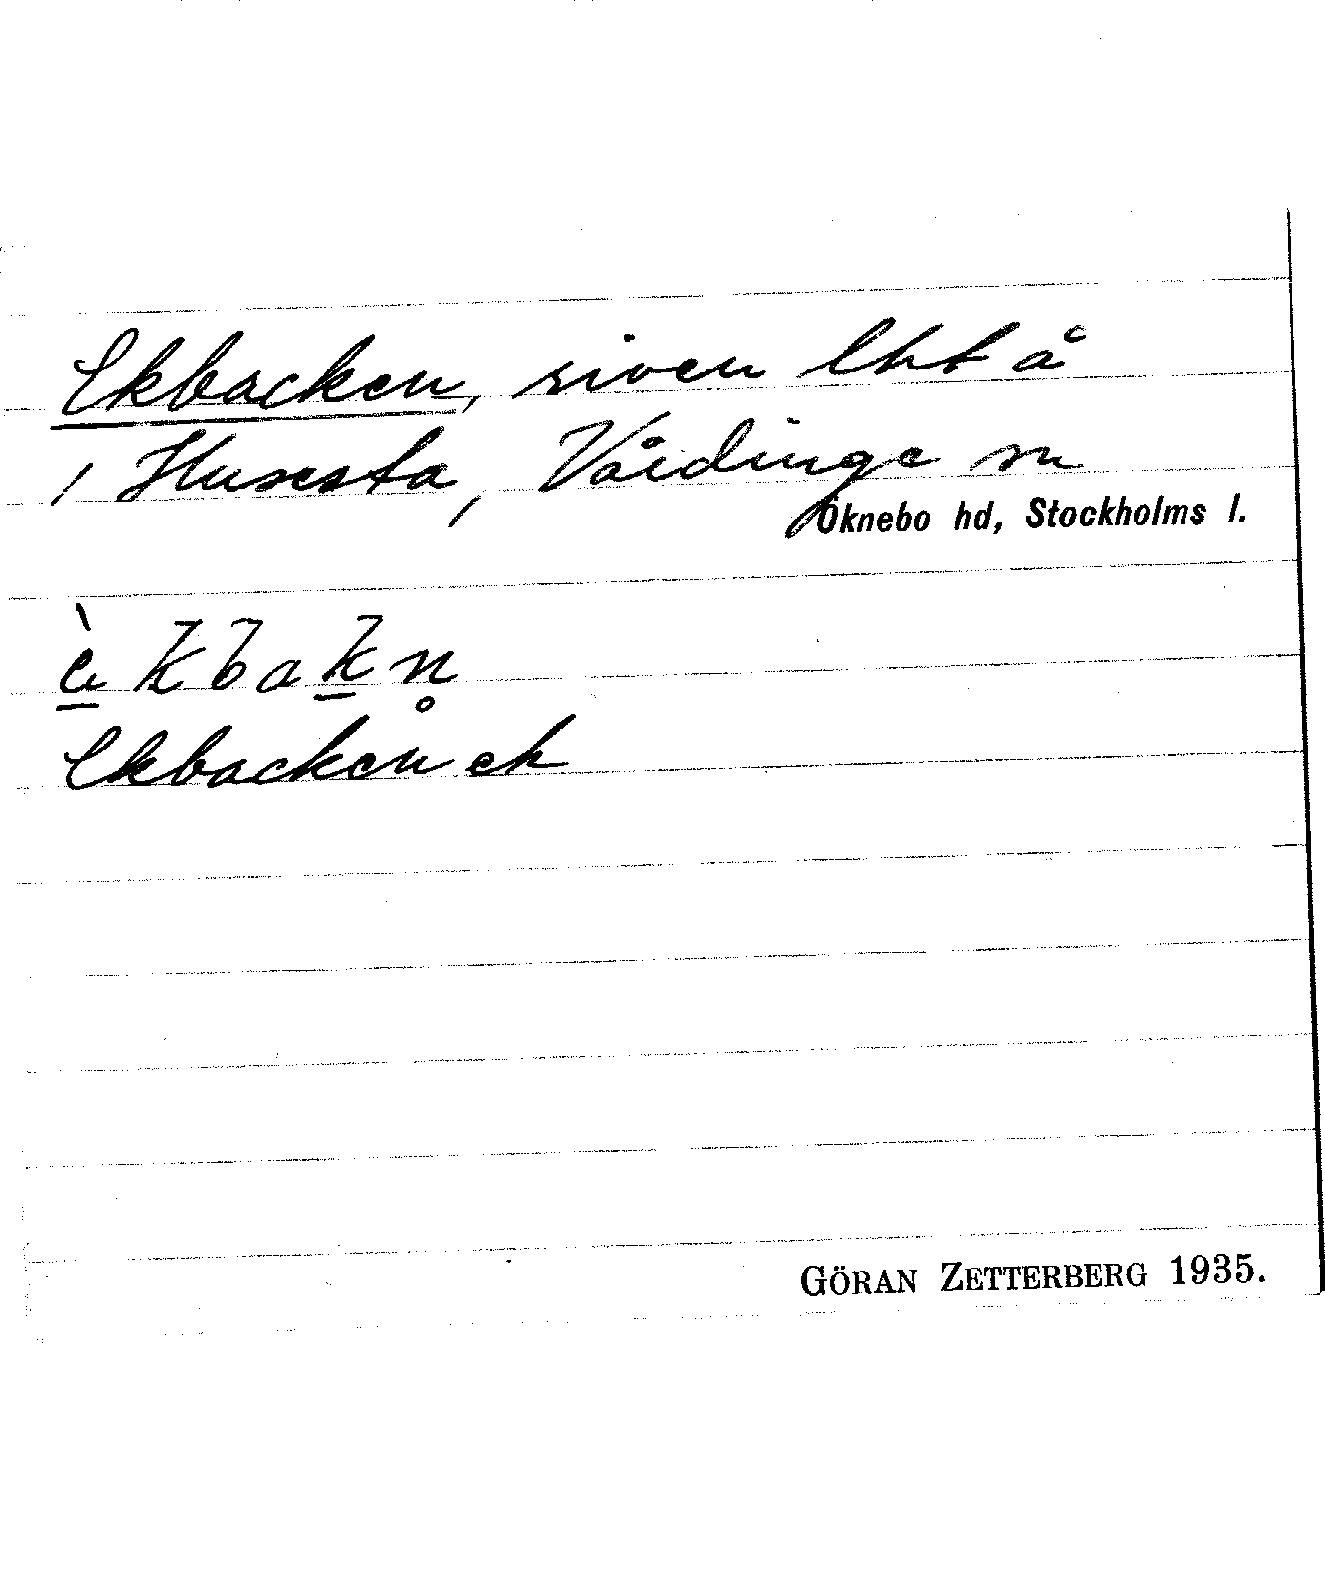 Ekbacken, riven lht å
i Husesta, Vårdinge sn
Öknebo hd, Stockholms l.
è̱kbaḵn̥
Ekbacken ek
GÖRAN ZETTERBERG 1935.